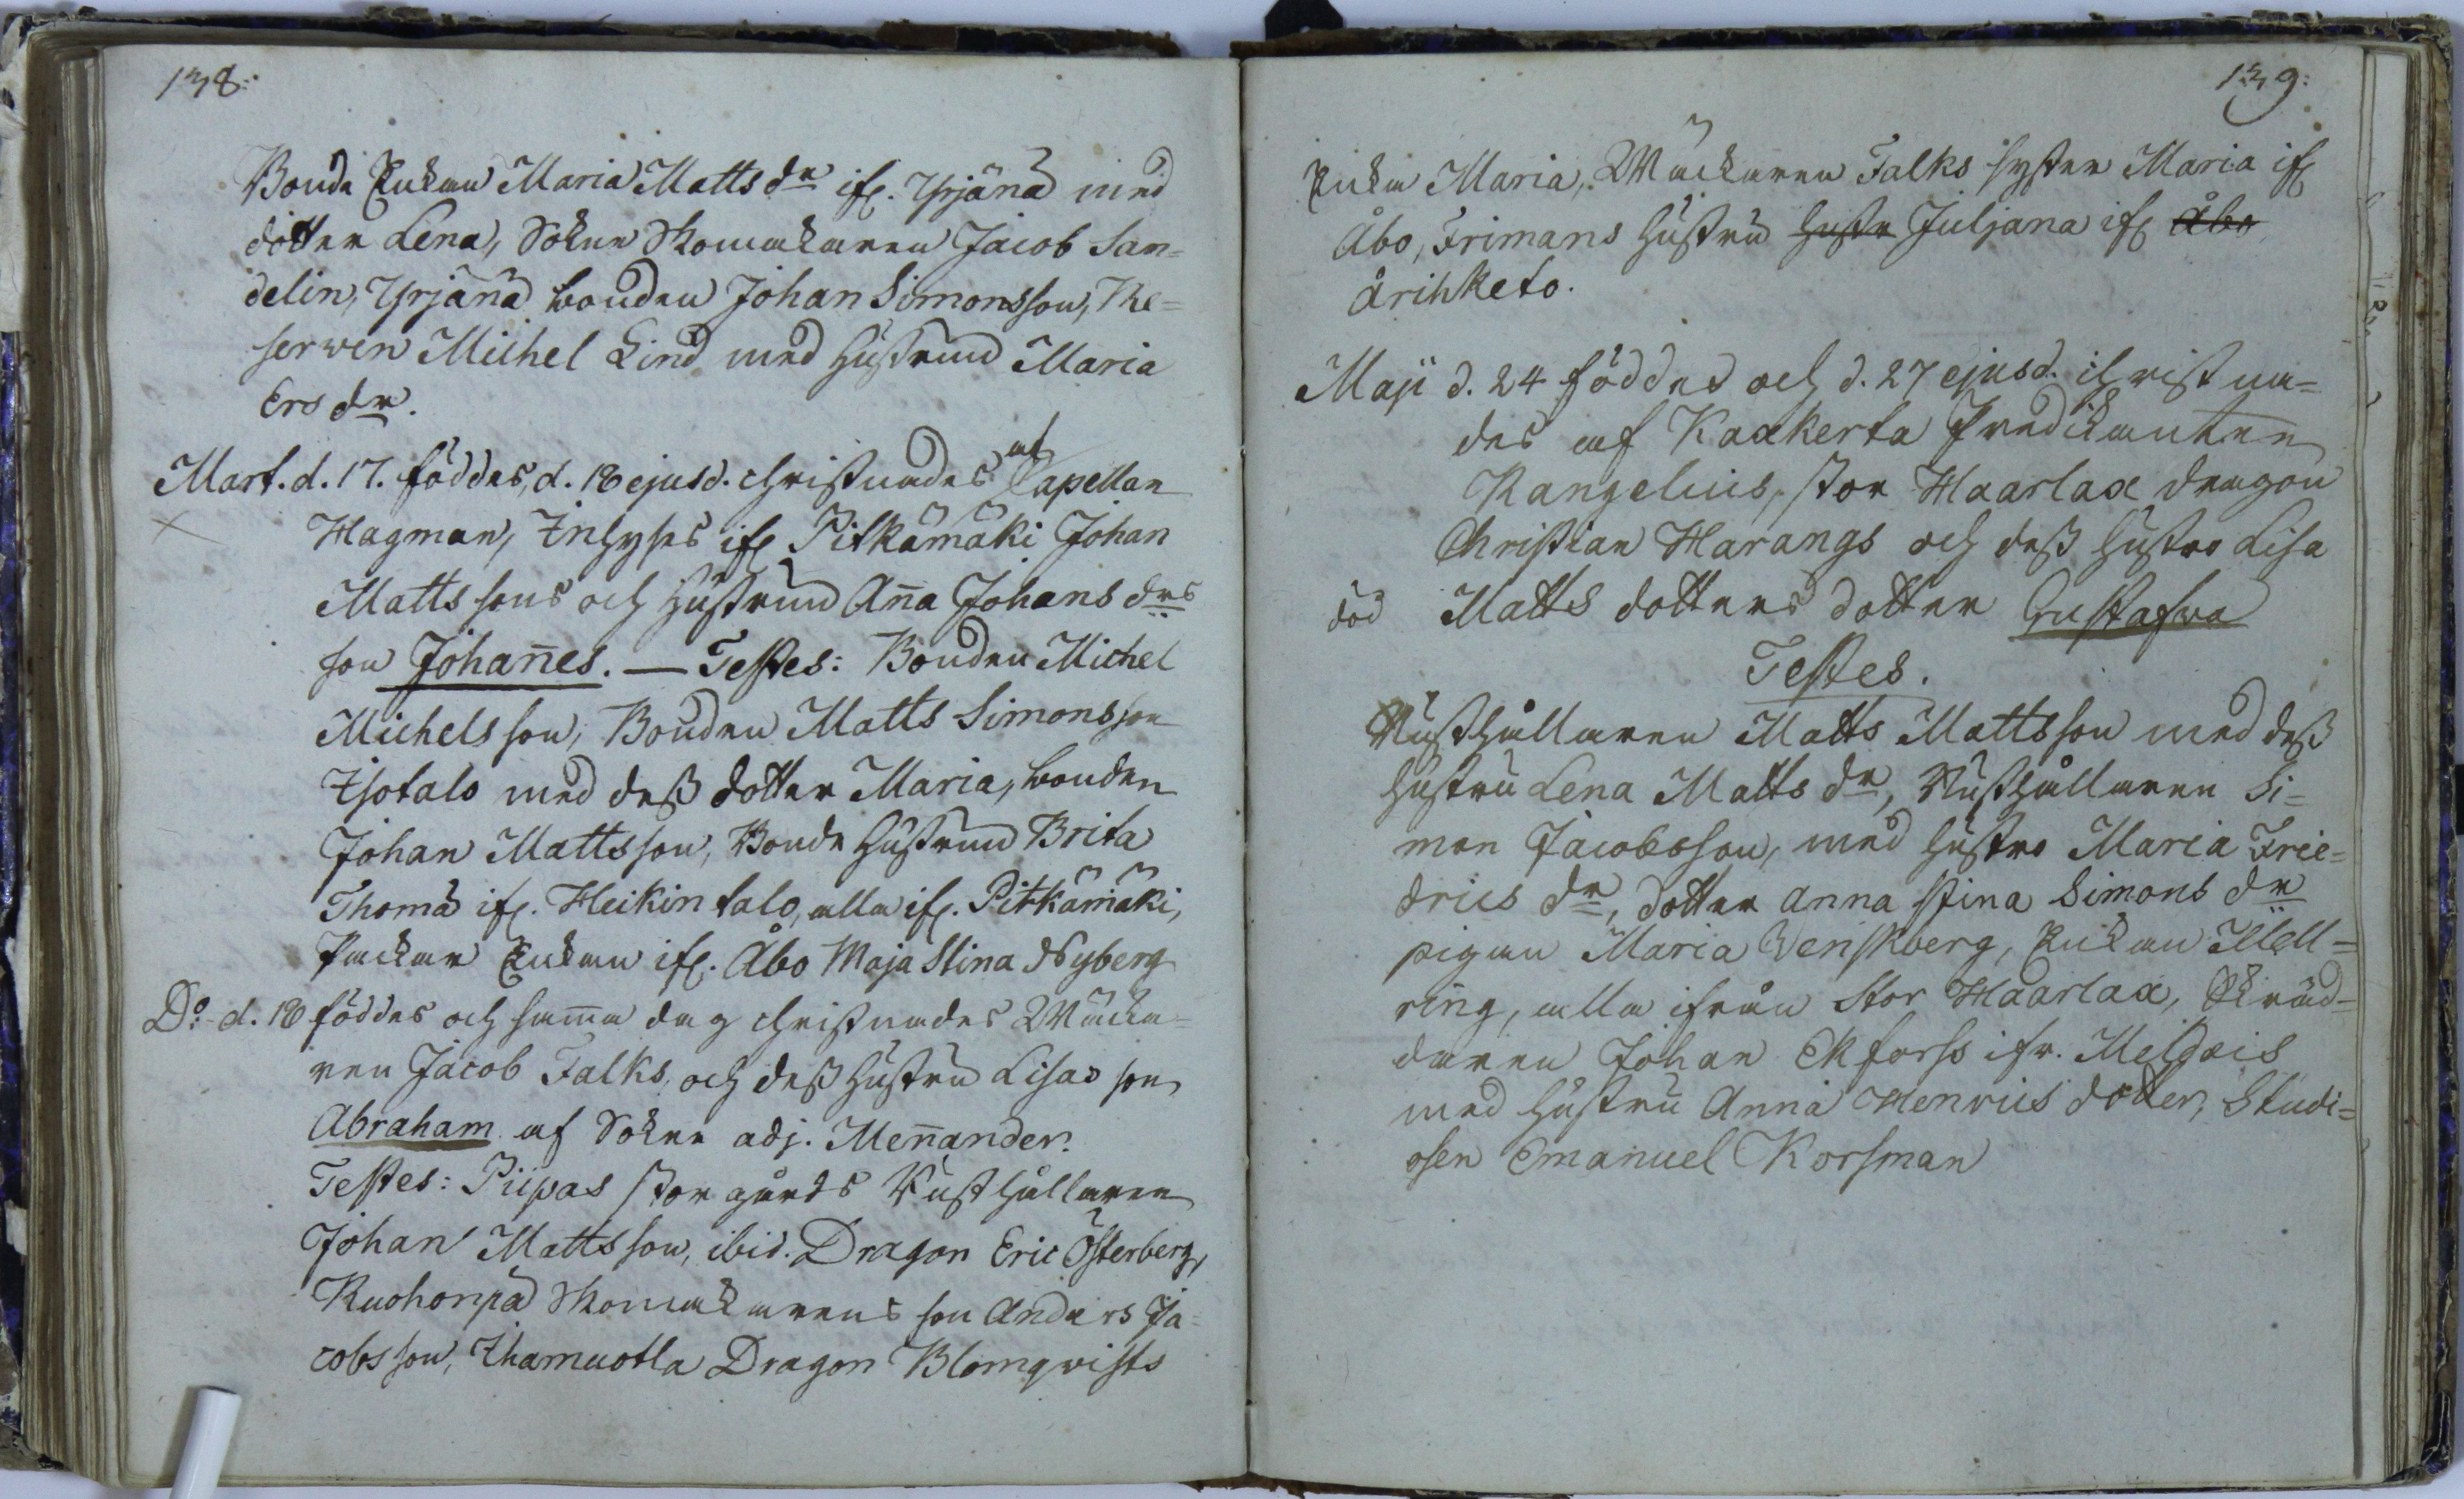 138:
Bonde Enkan Maria Matts dr ifr. Yrjänä med
dotter Lena, Sokne Skomakaren Jacob San=
delin, Yrjänä bonden Johan Simonsson, Re=
serwen Michel Lind med hustrun Maria
Ers dr.
Mart. d. 17. föddes, d. 18 ejusd. christnades af Capellan
Hagman, Inhyses ifr Pitkämäki Johan
Matts sons och hustrun Aña Johans drs
son Johañes. — Testes: Bonden Michel
Michels son, Bonden Matts Simonsson
Isotalo med dess dotter Maria, bonden
Johan Mattsson, Bonde hustrun Brita
Thomä ifr. Heikin talo, alla ifr. Pitkämäki,
Packar Enkan ifr. Åbo Maja Stina Nyberg
Do. d. 18 föddes och sam̄a dag christnades Wäcka=
ren Jacob Falks, och dess hustru Lisas son
Abraham af Sokne adj. Meñander.
Testes: Piipas stor gårds Rusthållaren
Johan Matts son, ibid. Dragon Eric Österberg,
Ruohonpä Skomakarens son Anders Ja=
cobs son, Ihamuotla Dragon Blomqvists
139:
Enka Maria, Wäckaren Falks syster Maria ifr
Åbo, Frimans hustru hustr Juljana ifr Åbo
Ärihketo.
Maji d. 24 föddes och d. 27 ejusd. christna=
des af Kaxkerta Predikanten
Rangelius, stor Haarlax dragon
Christian Harangs och dess hustro Lisa
död Matts dotters dotter Gustafwa
Testes.
Rusthållaren Matts Mattsson med dess
hustru Lena Matts dr, Rusthållaren Si=
mon Jacobsson, med hustro Maria Frie=
drics dr, dotter Anna stina Simons dr
pigan Maria Wenskberg, Enkan Hell=
ring, alla ifrån Stor Haarlax, Skräd=
daren Johan Ekforss ifr. Meldois
med hustru Anna Henrics dotter, Studi=
osen Emanuel Korsman